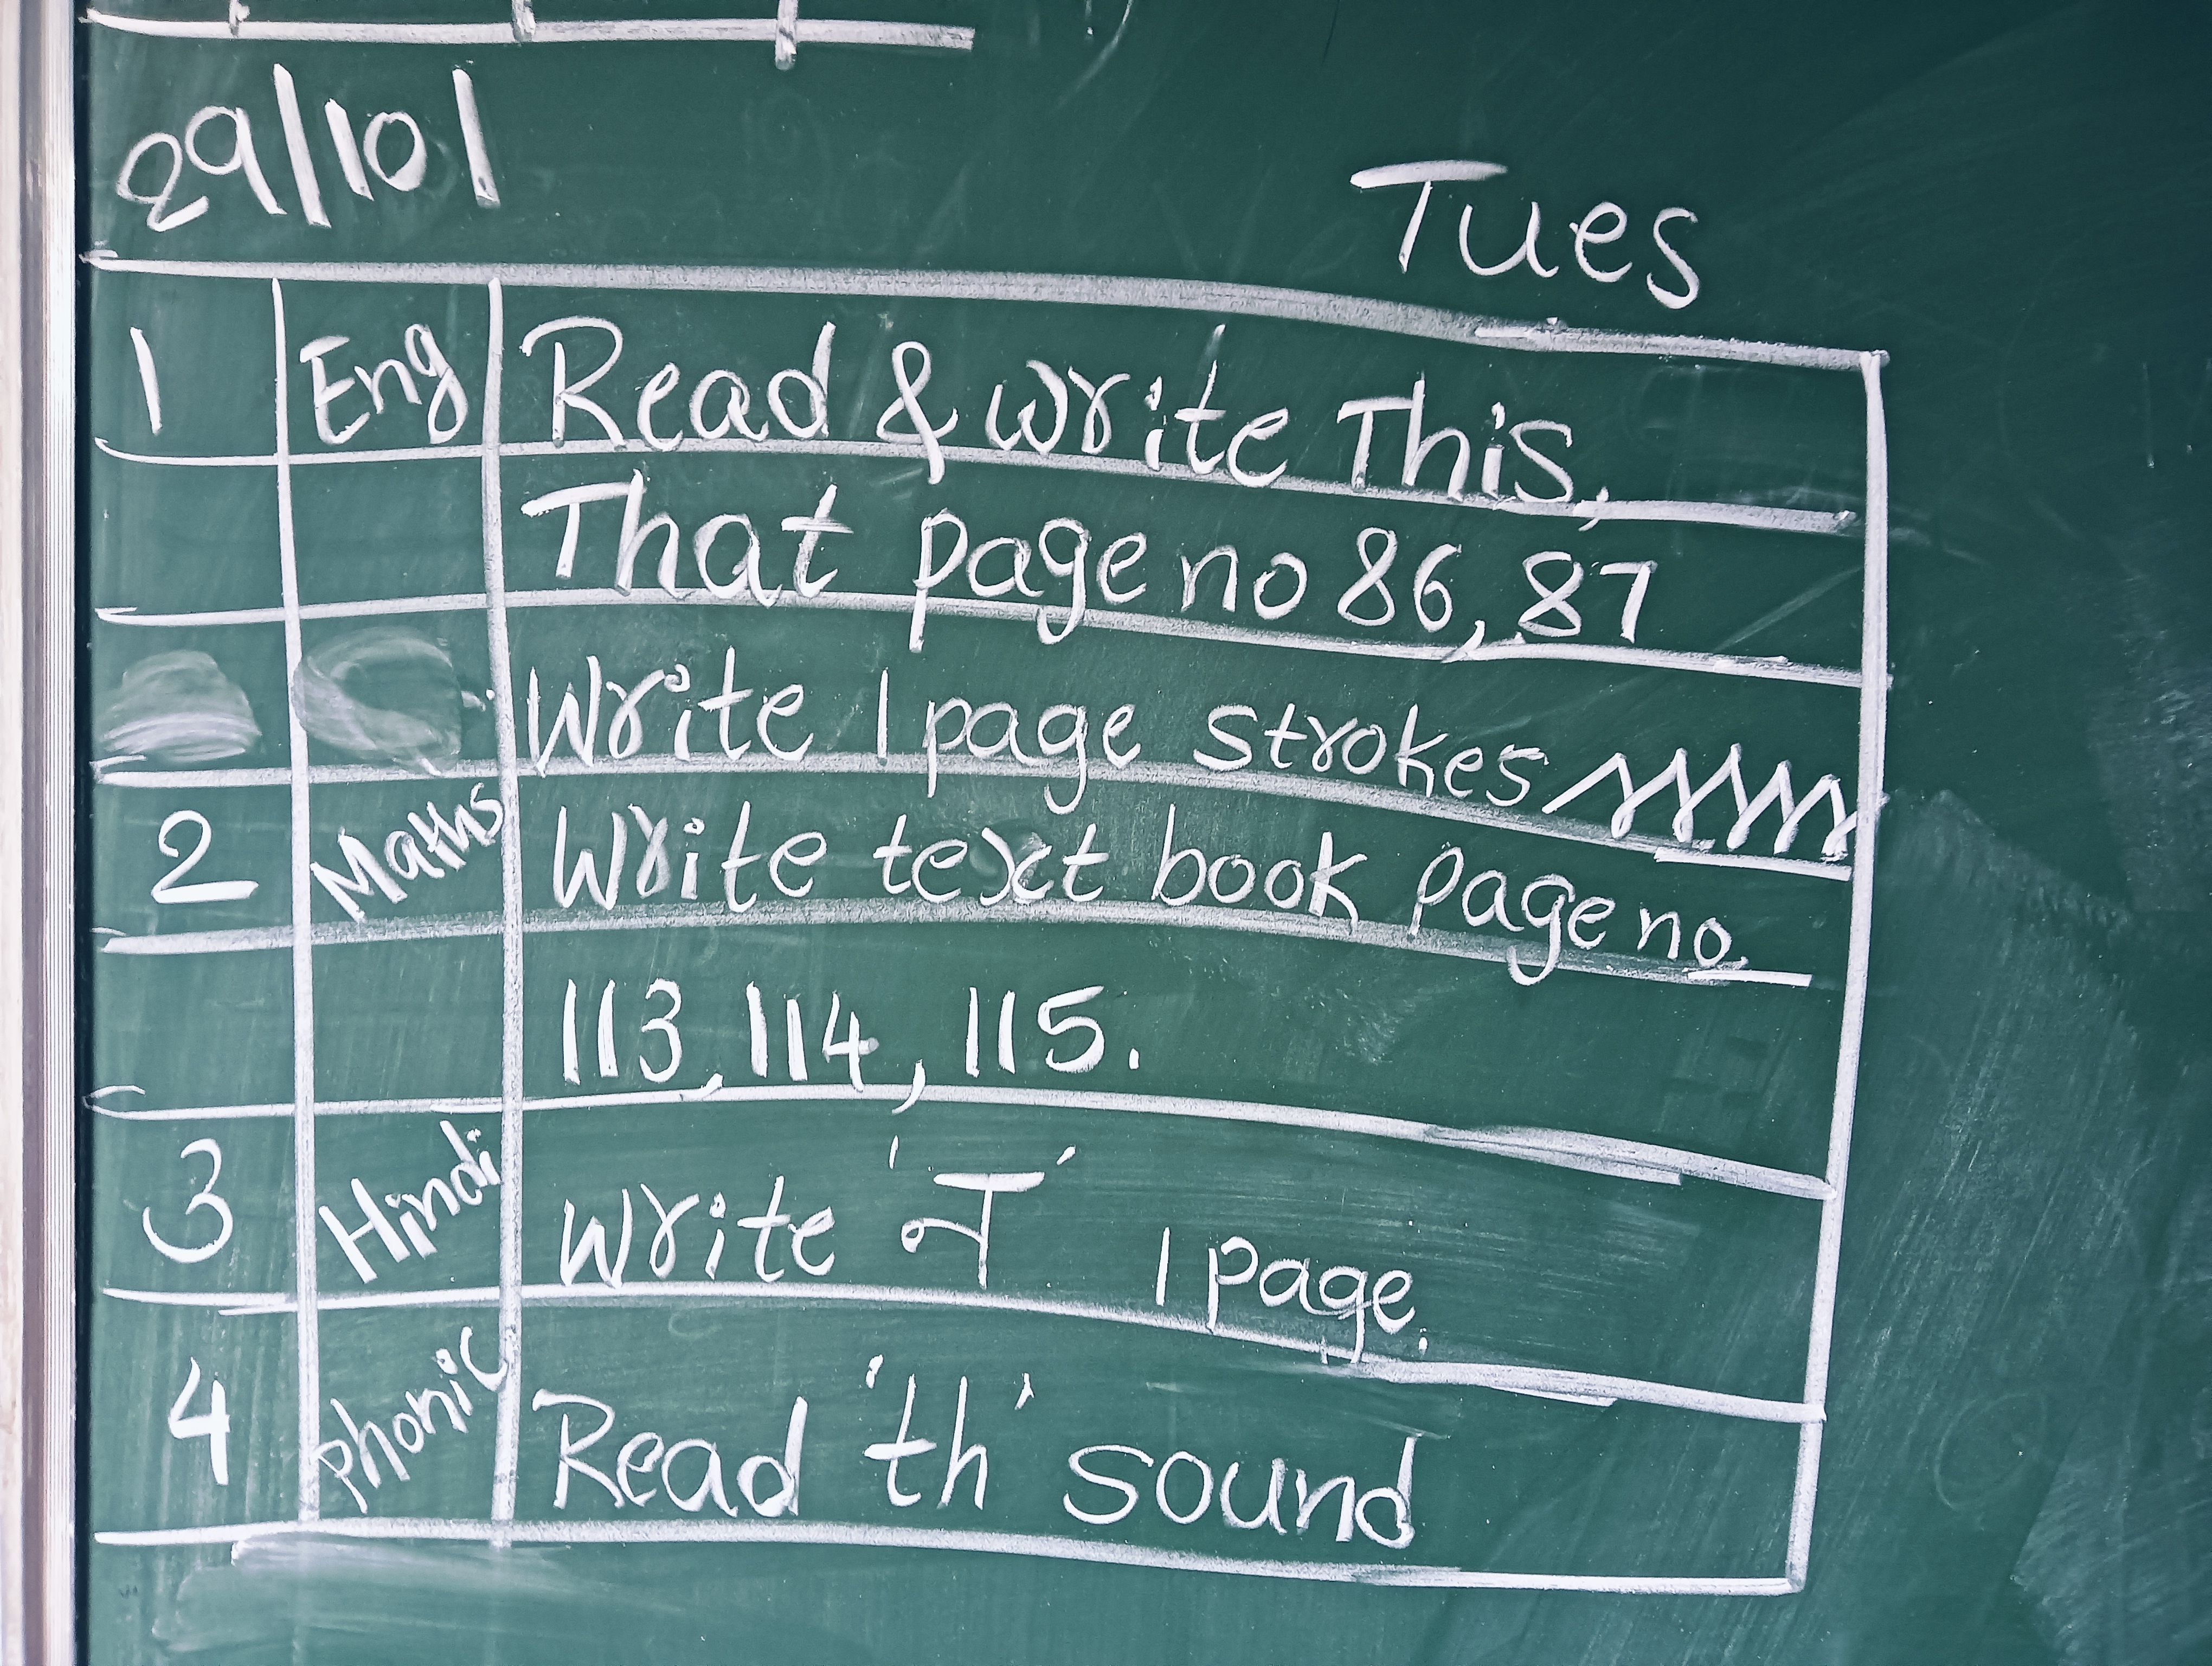 29/10/
Tues
1 Eng Read & write This,
That page no 86, 87
Write 1 page strokes
2 Maths Write text book page no
113, 114, 115.
3 Hindi Write 'न' 1 page.
4 Phonic Read 'th' sound